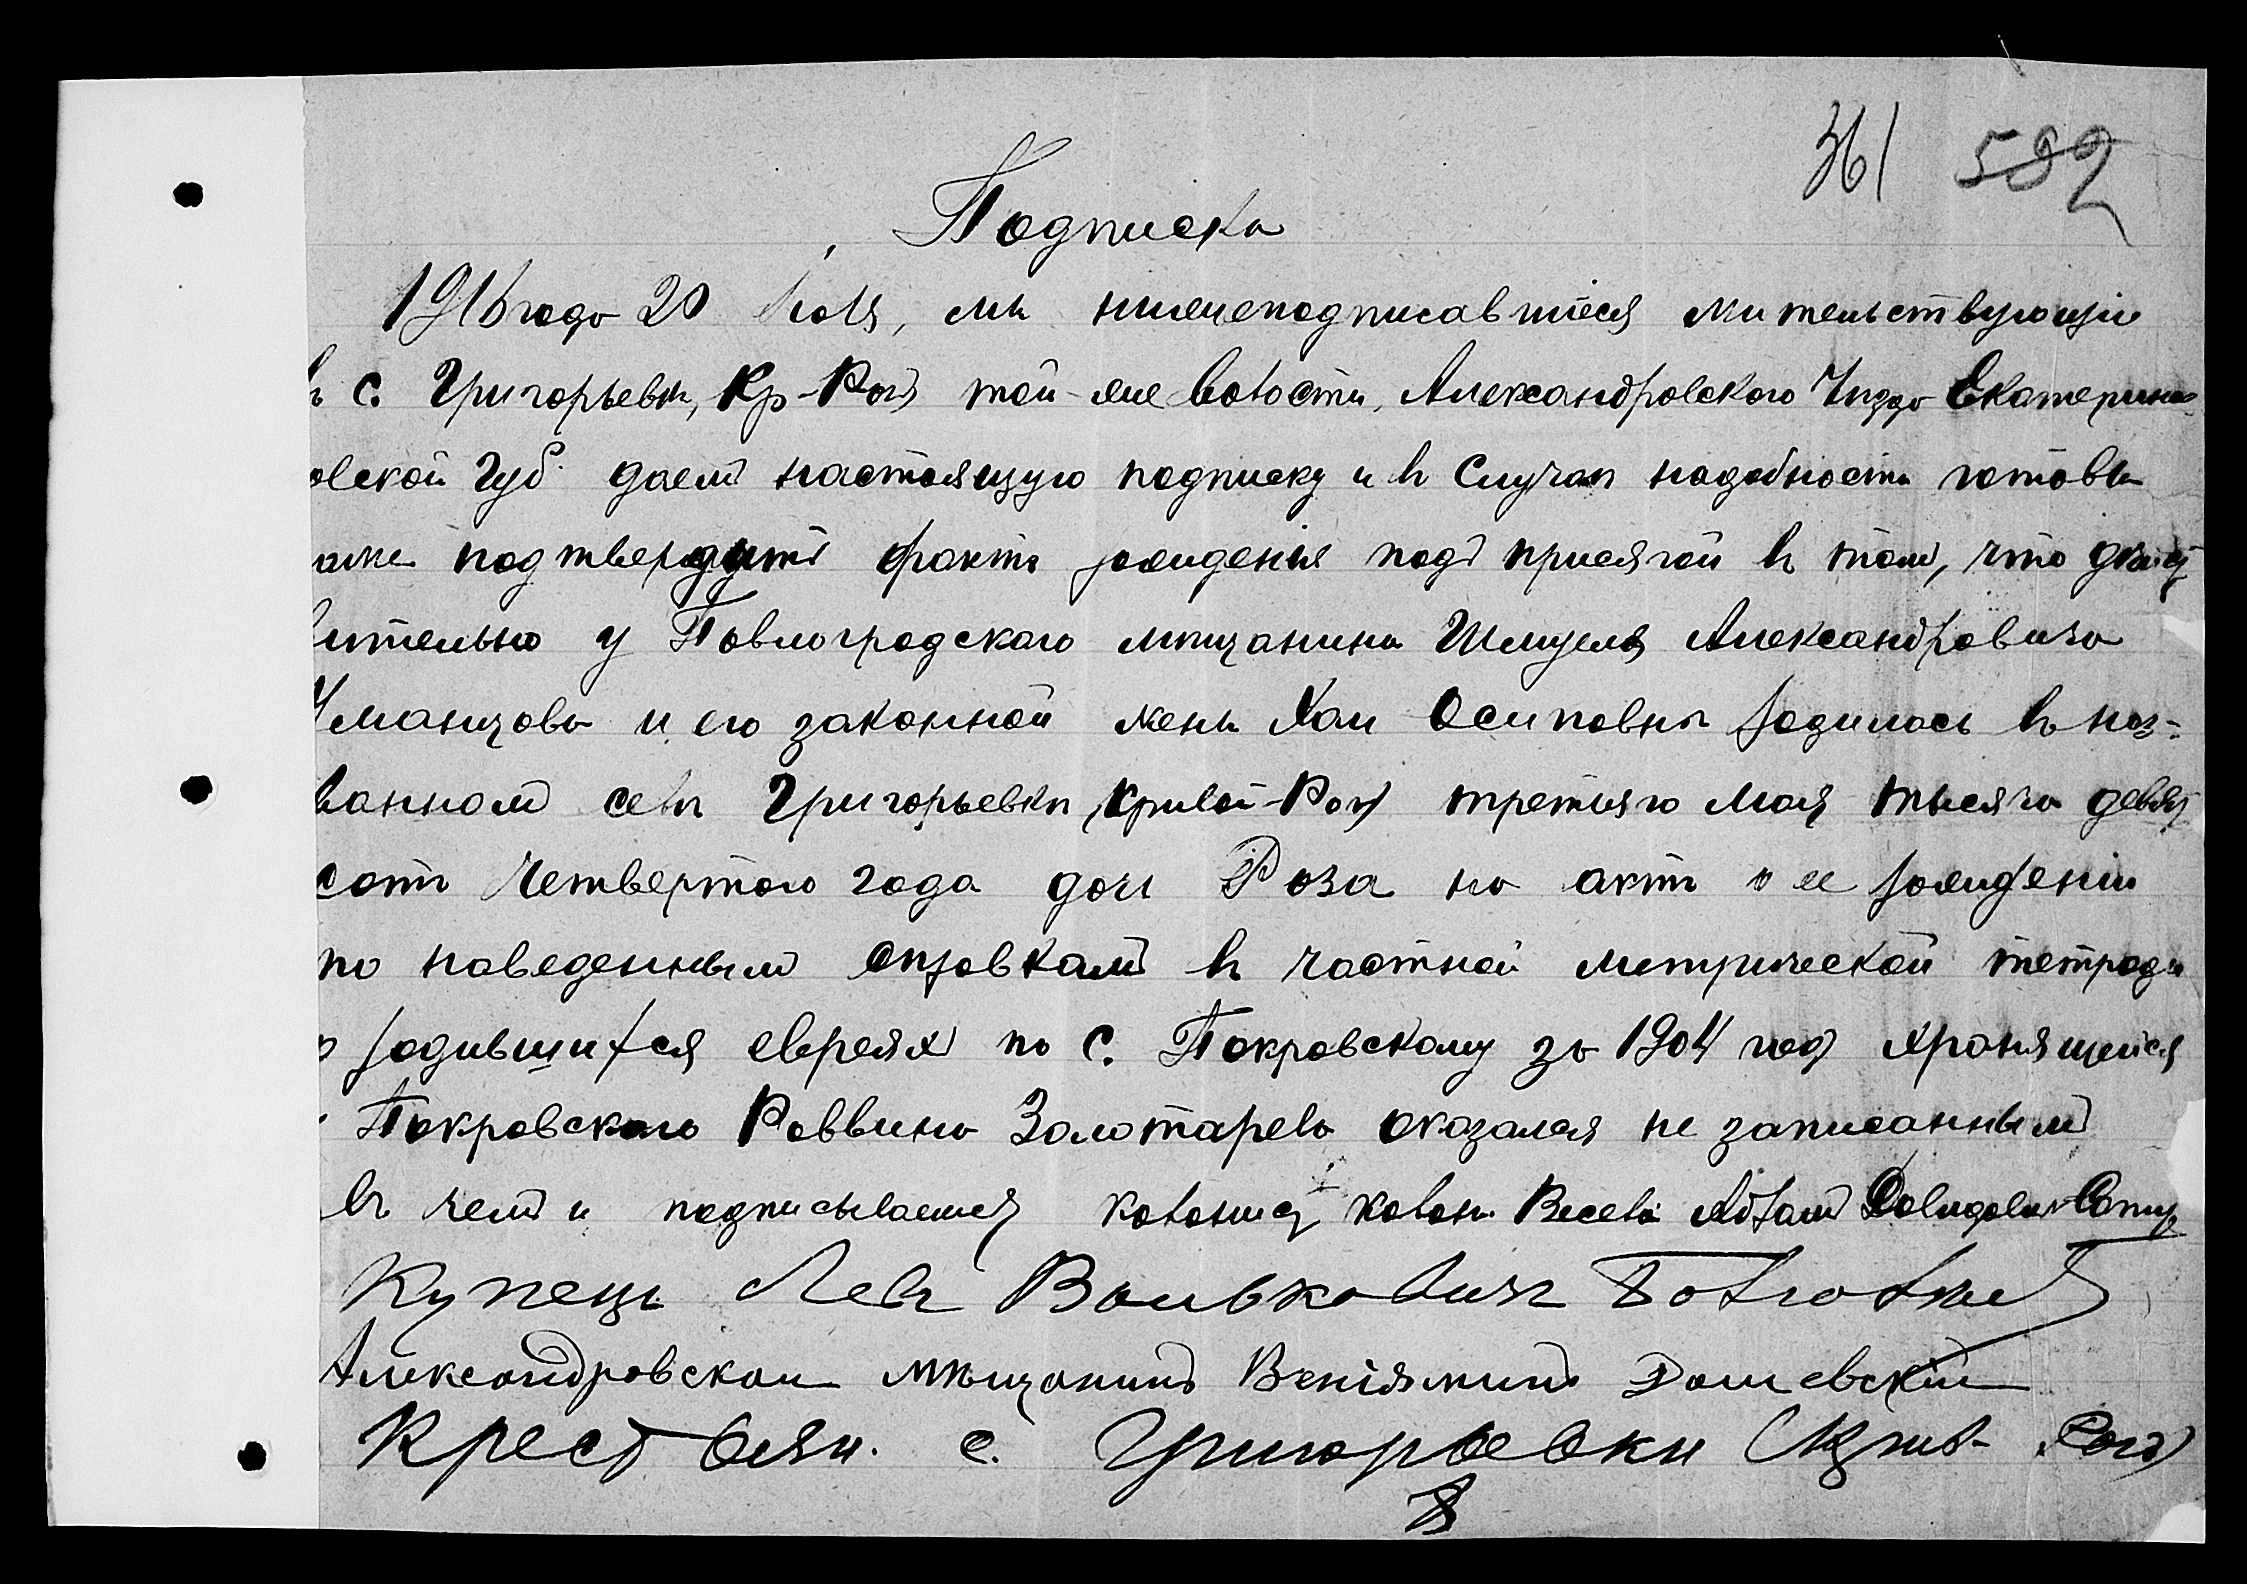 361 592
Подписка
1916 года 20 Іюля, мы нижеподписавшіеся жительствующіе
въ с. Григорьевкѣ, Кр-Рогъ той-же волости, Александровскаго Уѣзда Екатерино-
славской Губ. даемъ настоящую подписку и въ случаѣ надобности готовы
даже подтвердить фактъ рожденія подъ присягой въ томъ, что дѣйст
вительно у Павлоградскаго мѣщанина Шмуеля Александровича
Уманцова и его законной жены Хаи Осиповны родилась въ наз-
ванномъ селѣ Григорьевкѣ, Кривой-Рогъ третьяго Мая тысяча девят
сотъ четвертого года дочь Роза но актъ о ея рожденіи
по наведеннымъ справкамъ въ частной метрической тетради
о родившихся евреяхъ по с. Покровскому за 1904 годъ хранящейся
Покровскаго Раввина Золотарева оказался не записаннымъ
въ чемъ и подписываемся колонистъ колон. Весела Абрамъ
Купецъ Левъ Вольковичъ
Александровской мѣщанинъ Веніяминъ Дашевскій
Крестьян. с. Григорьевки Крив-Рогъ